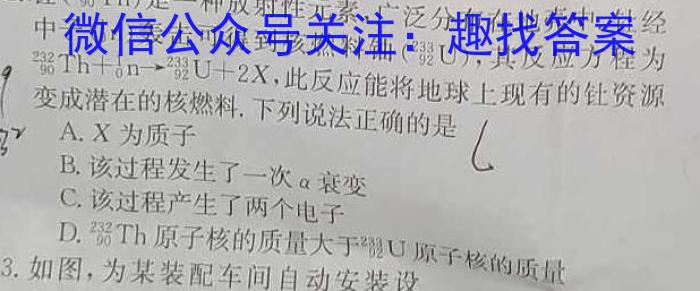 是一种放射性元素,广泛分
微信公众号关注：趣找答案
中 得到核燃料铀(²³³₉₂U),其反应方程为
²³²₉₀Th+¹₀n→²³³₉₂U+2X,此反应能将地球上现有的钍资源
变成潜在的核燃料.下列说法正确的是
A. X 为质子
B. 该过程发生了一次 α 衰变
C. 该过程产生了两个电子
D. ²³²₉₀Th 原子核的质量大于²³³₉₂U 原子核的质量
3. 如图,为某装配车间自动安装设